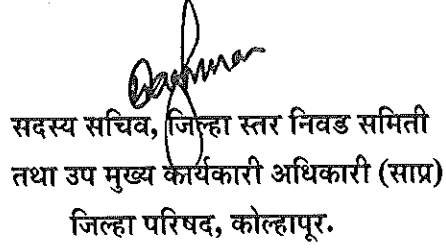 सदस्य सचिव, जिल्हा स्तर निवड समिती
तथा उप मुख्य कार्यकारी अधिकारी (साप्र)
जिल्हा परिषद, कोल्हापूर.